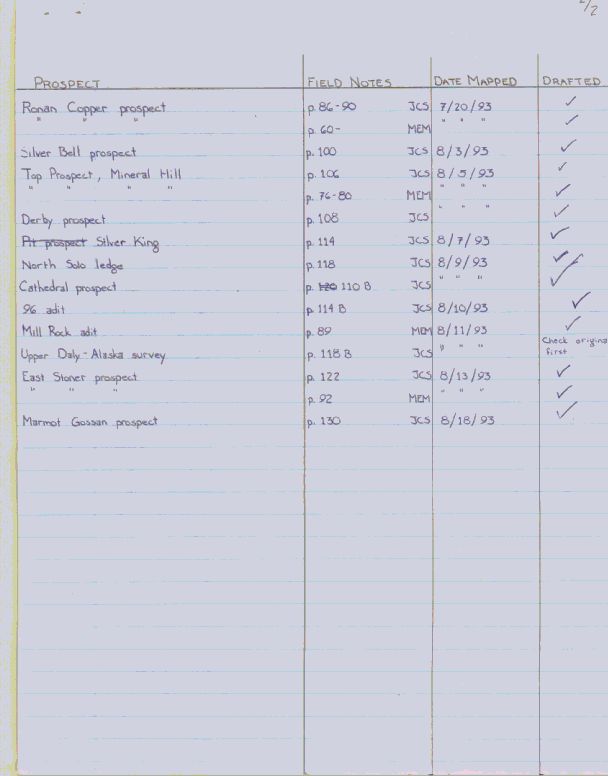 2/2
PROSPECT FIELD NOTES DATE MAPPED DRAFTED
Ronan Copper prospect p. 86-90 JCS 7/20/93 ✓
" " " p. 60- MEM " " " ✓
Silver Bell prospect p. 100 JCS 8/3/93 ✓
Top Prospect, Mineral Hill p. 106 JCS 8/5/93 ✓
" " " " p. 76-80 MEM " " " ✓
Derby prospect p. 108 JCS " " " ✓
Pit prospect Silver King p. 114 JCS 8/7/93 ✓
North Solo ledge p. 118 JCS 8/9/93 ✓
Cathedral prospect p. 120 110 B JCS " " " ✓
96 adit p. 114 B JCS 8/10/93 ✓
Mill Rock adit p. 89 MEM 8/11/93 ✓
Upper Daly-Alaska survey p. 118 B JCS " " " Check origina
first
East Stoner prospect p. 122 JCS 8/13/93 ✓
" " " p. 92 MEM " " " ✓
Marmot Gossan prospect p. 130 JCS 8/18/93 ✓